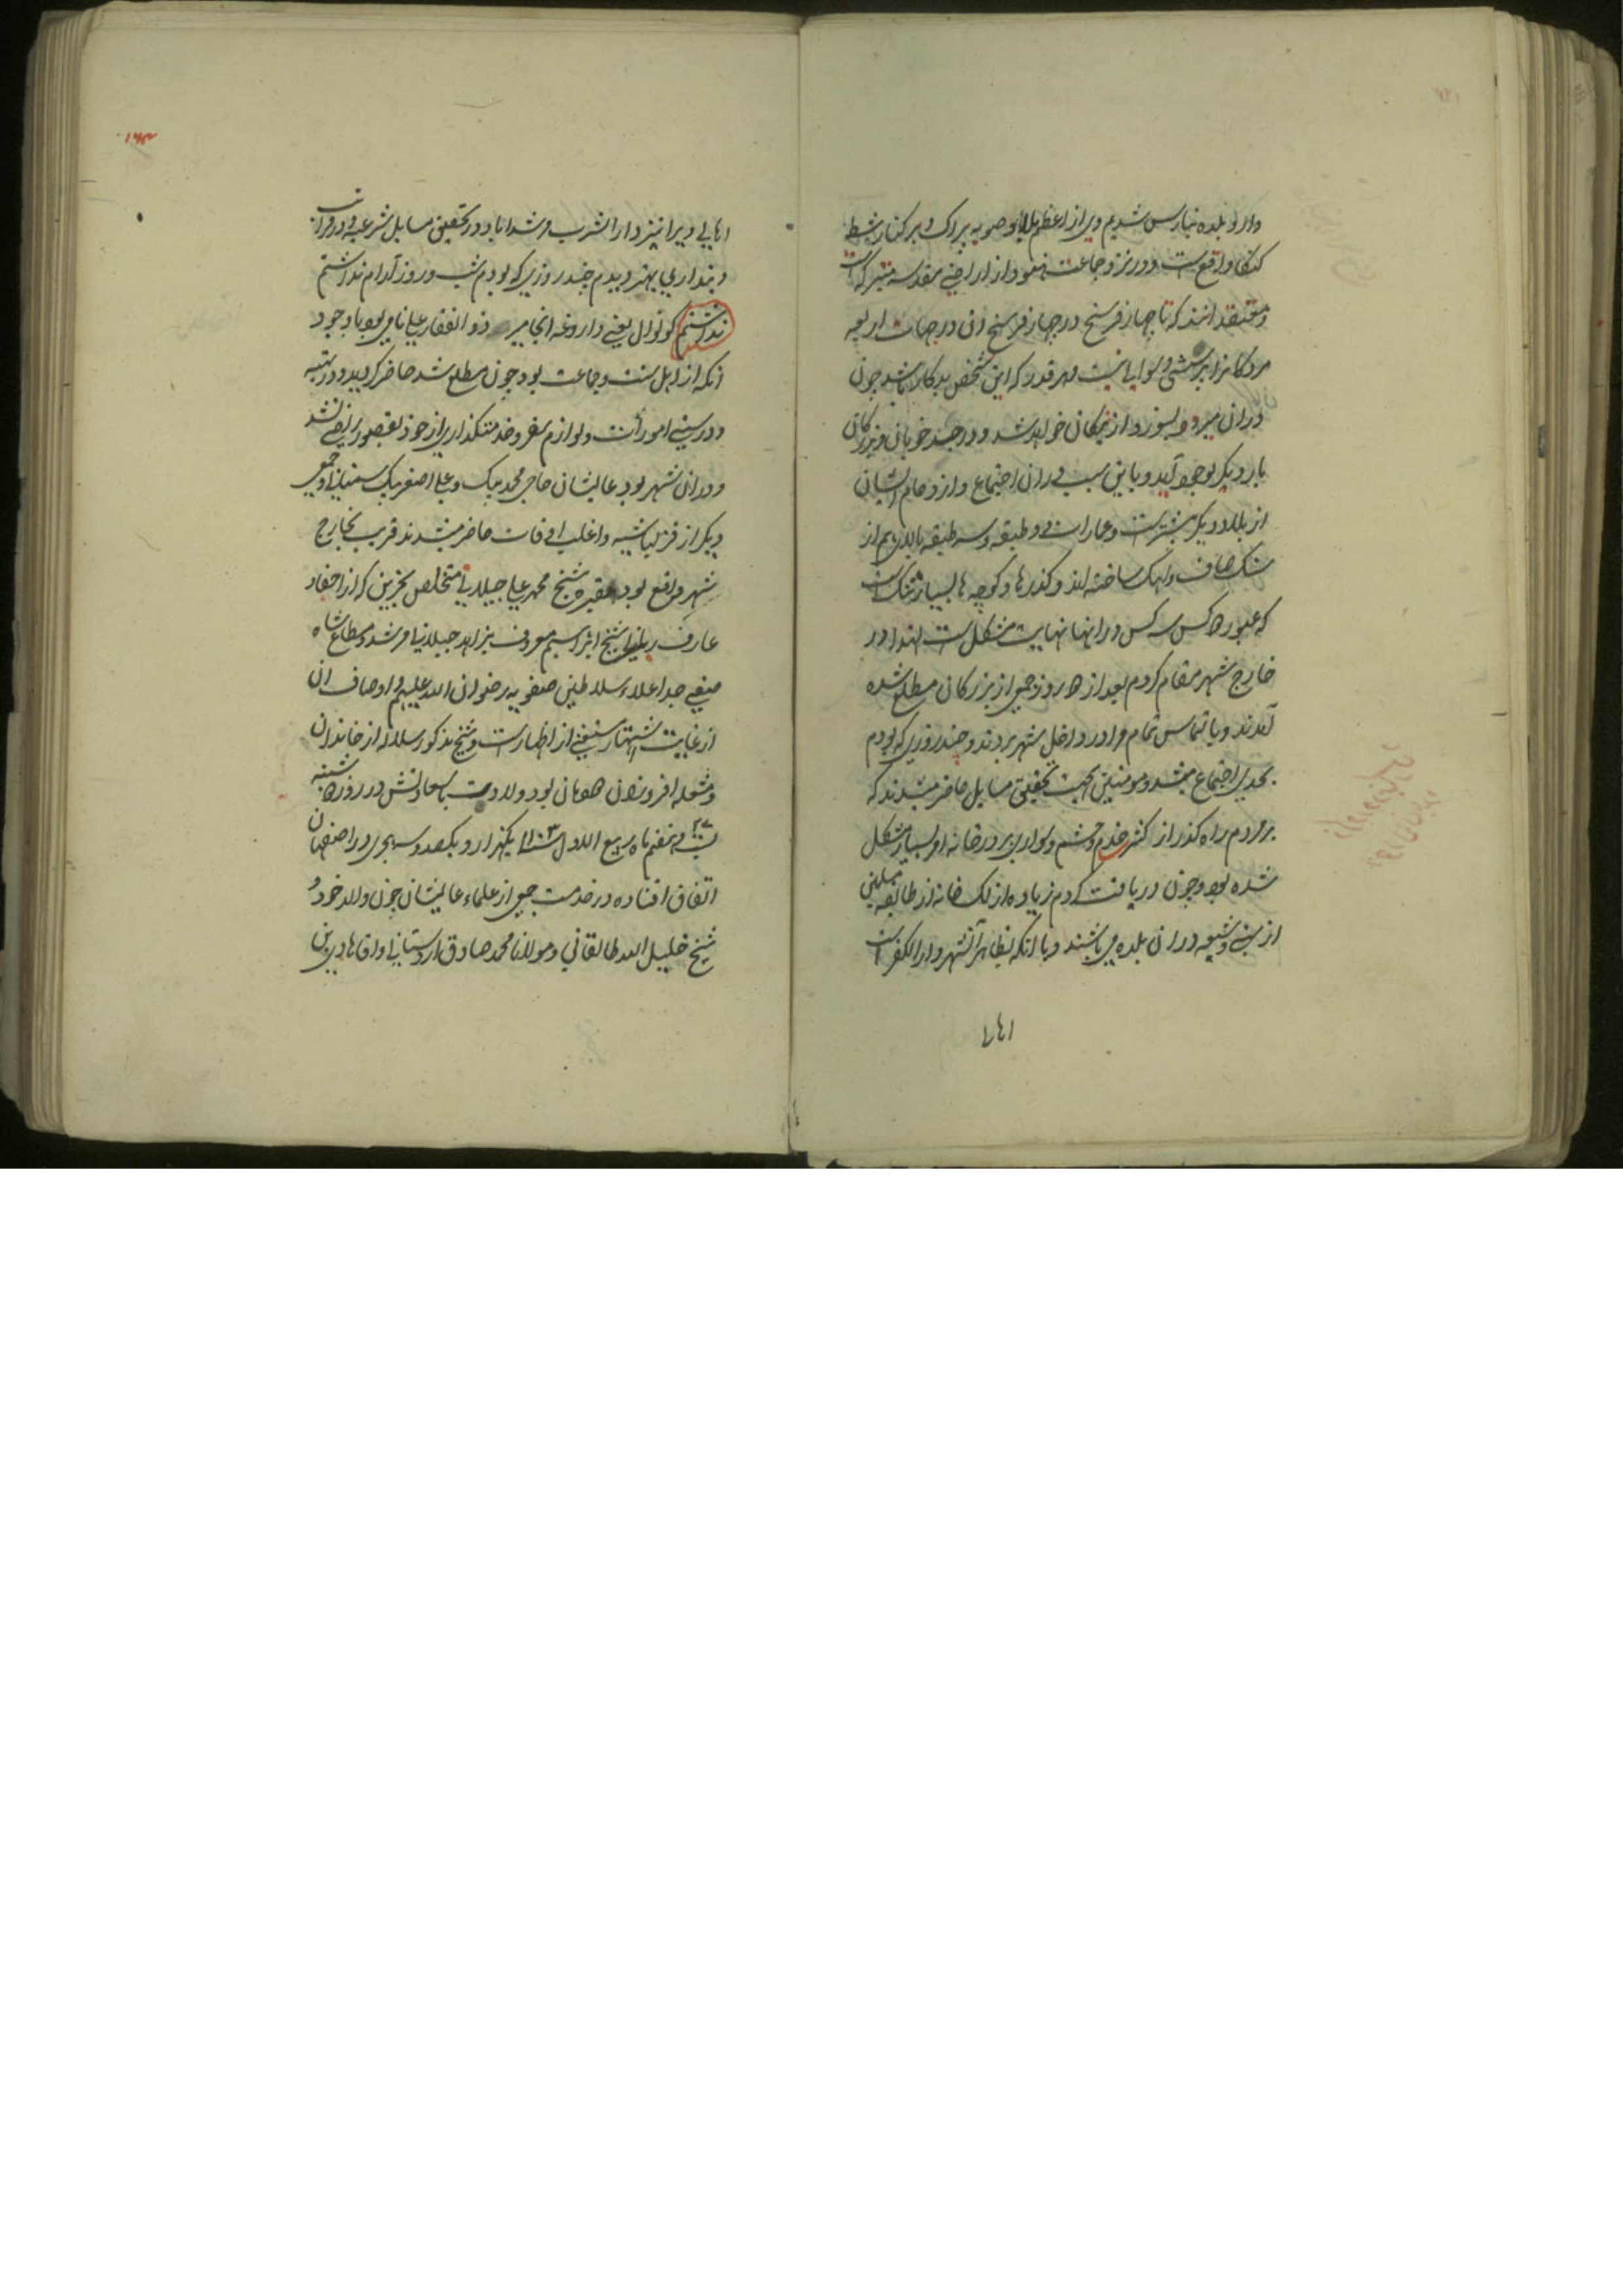 وارد بلده بنارس شدیم وی از اعظم بلاد صوبه پراک و بر کنار شط
کنکا واقع است و در نزد جماعت هنود از اراضی مقدسه متبرکه است
و معتقد انند که تا چهار فرسخ در چهار فرسخ ان در جهات اربعه
مردکانرا پرسشی و سوالی نیست و هر قدر که این شخص بدکار باشد چون
در ان میرد و بسوزد از نیکان خواهد شد و در جسد خوبان و بزرکان
بار دیکر بوجود آید و باین سبب در ان اجتماع و ازدحام ایشان
از بلاد دیکر بیشتر است و عمارات دو طبقه و سه طبقه بالای هم از
سنک صاف و اهک ساخته اند و کذرها و کوچه ها بسیار تنک است
که عبور ۲ کس سه کس در انها نهایت مشکل است لهذا در
خارج شهر مقام کردم بعد از ۲ روز جمعی از بزرکان مطلع شده
آمدند و با التماس تمام مرا در داخل شهر بردند و چند روزی که بودم
بحدی اجتماع میشد و مومنین بجهت تحقیق مسایل حاضر میشدند که
بر مردم راه کذر از کثر خدم و حشم و سواری بر در خانه او بسیار مشکل
شده بود و چون دریافت کردم زیاده از لک خانه از طایفه مسلمین
از سنی و شیعه در ان بلده می باشند و با انکه بظاهر آنشهر دار الکفر است
اهالی
۱۶۴
اهالی ویرا نیز دار الشرب مرشداباد در تحقیق مسایل شرعیه و در مراتب
دینداری بهتر دیدم چند روزی که بودم شب و روز آرام نداشتم
نداشتم کوتوال یعنی داروغه انجا میر ذو الفقار علی نامی بود با وجود
انکه از اهل سنت و جماعت بود چون مطلع شد حاضر کردید و در تنبیه
و درستی امورات و لوازم سفر و خدمتکذاری از خود بقصور راضی نشد
و در ان شهر بود عالیشان حاجی محمد بیک و علی اصغر بیک و جمعی
دیکر از قزلباشیه و اغلب اوقات حاضر میشدند قریب بخارج
شهر واقع بود مقبره شیخ محمد علی جیلانی متخلص بحزین که از احفاد
عارف ربانی شیخ ابراهیم معروف بزاهد جیلانی مرشد و مطاع شاه
صفی جد اعلاء سلاطین صفویه رضوان الله علیهم و اوصاف ان
از غایت اشتهار مستغنی از اظهار است و شیخ مذکور سلاله از خاندان
و شعله افروز ان دودمان بود ولادت باسعادتش در روز ۲ شنبه
بیست و هفتم ۲۷ ماه ربیع الاول سنه ۱۱۰۳ یکهزار و یکصد و سه هجری در اصفهان
اتفاق افتاده در خدمت جمعی از علماء عالیشان چون والد خود و
شیخ خلیل الله طالقانی و مولانا محمد صادق اردستانی و اقا هادی بن